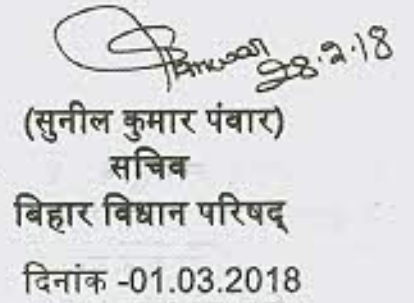 Panwar 28.2.18
(सुनील कुमार पंवार)
सचिव
बिहार विधान परिषद्
दिनांक -01.03.2018